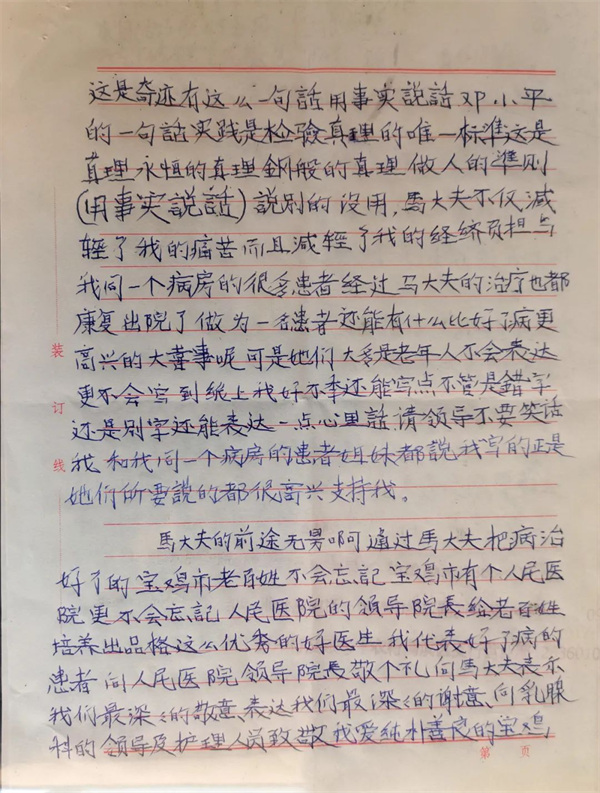 这是奇迹有这么一句話用事实説話邓小平
的一句話实践是检驗真理的唯一标準这是
真理永恒的真理鋼般的真理做人的準则
(用事实説話)説别的没用,馬大夫不仅減
輕了我的痛苦而且減輕了我的经济负担与
我同一个病房的很多患者经过马大夫的治疗也都
康复出院了做为一名患者还能有什么比好了病更
高兴的大喜事呢可是她们大多是老年人不会表达
更不会写到纸上我好不孬还能写点不管是錯字
还是别字还能表达一点心里話请领导不要笑话
我和我同一个病房的患者姐妹都説我写的正是
她们所要説的都很高兴支持我。
馬大夫的前途无畏啊通过馬大夫把病治
好了的宝鸡市老百姓不会忘記宝鸡市有个人民医
院更不会忘記人民医院的领导院長给老百姓
培养出品格这么优秀的好医生我代表好了病的
患者向人民医院领导院長敬个礼向馬大夫表示
我们最深深的敬意、表达我们最深深的谢意、向乳腺
科的领导及护理人员致敬我爱纯朴善良的宝鸡
装
订
线
第 页